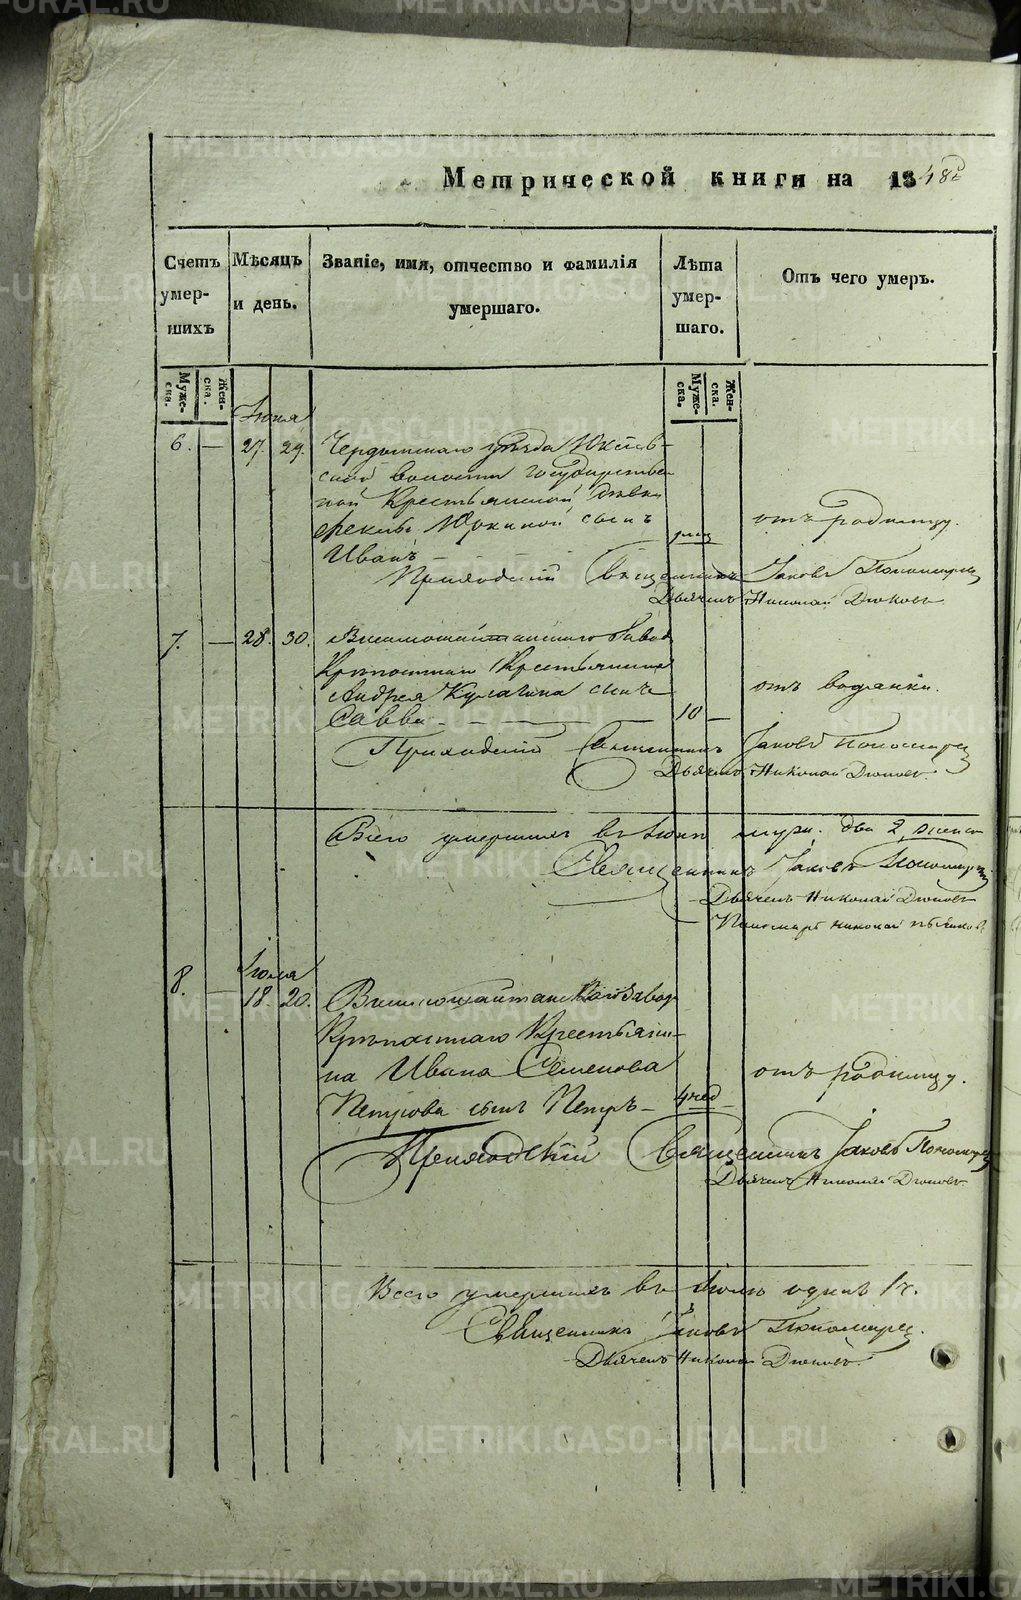 METRIKI.GASO-URAL.RU
Метрической книги на 1848й
Счетъ умер- шихъ
Мѣсяцъ и день.
Званіе, имя, отчество и фамилія умершаго.
Лѣта умер- шаго.
Отъ чего умеръ.
Муже- ска.
Жен- ска.
Муже- ска.
Жен- ска.
Іюня
6. — 27. 29. Чердынскаго уѣзда Юксѣев-
ской волости государствен
ной Крестьянской дѣвки
Ѳеклы сынъ
Иванъ — отъ родимцу.
Приходскій Священникъ Іаковъ Пономарев
Дьячекъ Николай Дюковъ
7. — 28. 30. Завод
Крѣпостнаго Крестьянина
Андрея Кулагина сынъ отъ водянки.
Савва — 10 —
Приходскій Священникъ Іаковъ Пономарев
Дьячекъ Николай Дюковъ.
Всего умершихъ въ Іюнѣ муж. два 2, женск
Священникъ Іаковъ Пономарев
Дьячекъ Николай Дюковъ
Пономарь Николай
Іюля
8. — 18. 20. Висимошайтанскаго завод
Крѣпостнаго Крестьяни-
на Ивана Семенова отъ родимцу.
Петрова сынъ Петръ — 4 нед —
Приходскій Священникъ Іаковъ Пономарев
Дьячекъ Николай Дюковъ.
Всего умершихъ въ Іюлѣ одинъ 1 ч.
Священникъ Іаковъ Пономарев.
Дьячекъ Николай Дюковъ.